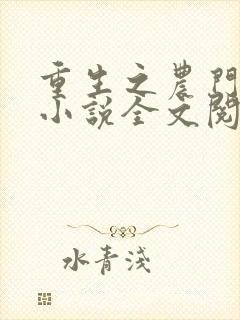 重生之農門
小說全文閱
水青淺